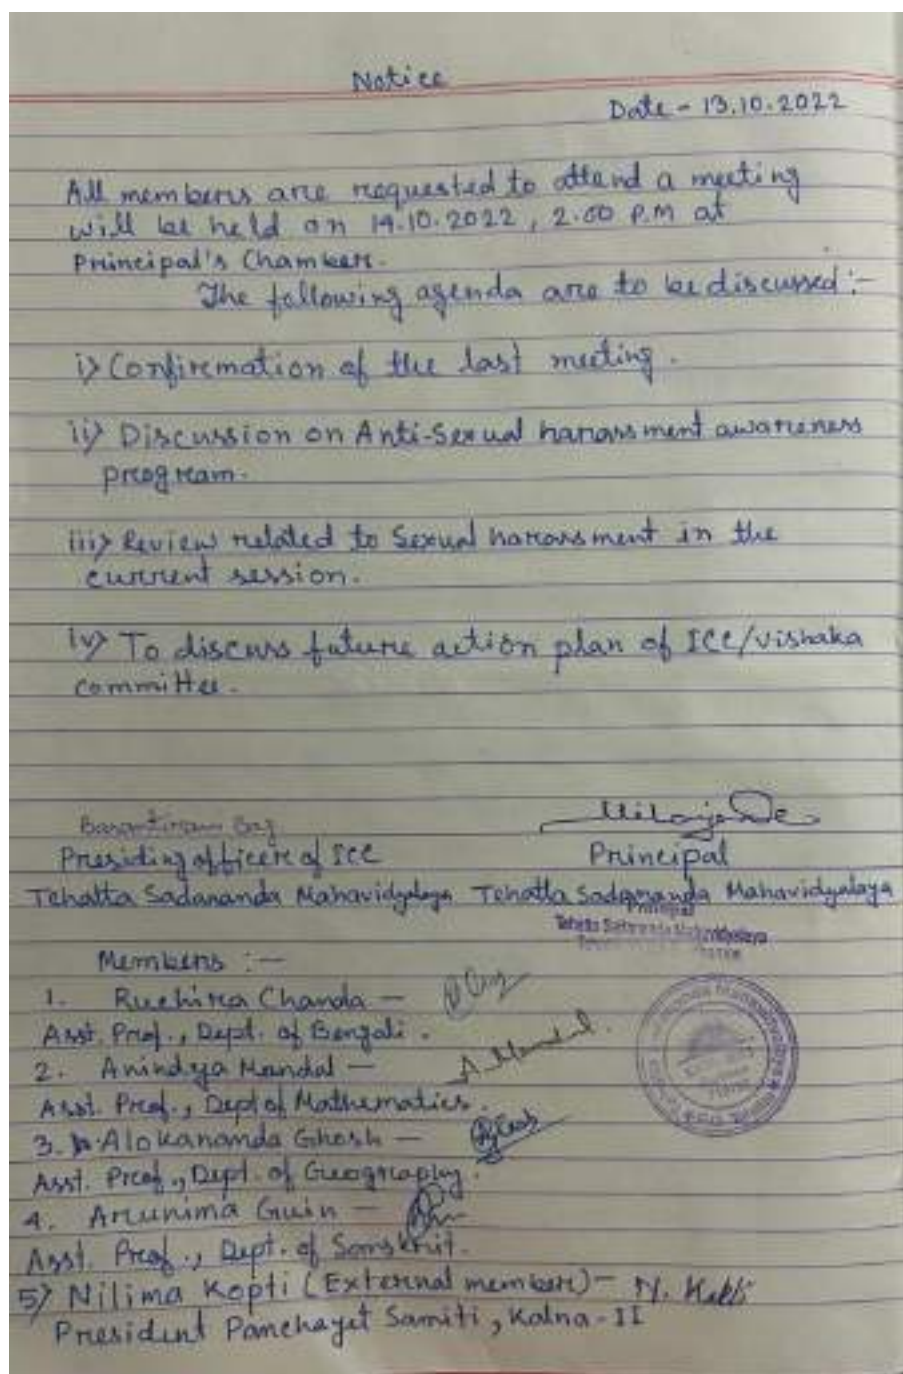 Notice
Date - 13.10.2022
All members are requested to attend a meeting
will be held on 14.10.2022, 2.00 P.M at
Principal's Chamber.
The following agenda are to be discussed :-
i) Confirmation of the last meeting.
ii) Discussion on Anti-Sexual harassment awareness
program.
iii) Review related to Sexual harassment in the
current session.
iv) To discuss future action plan of ICC/vishaka
committee.
Presiding officer of ICC
Principal
Tehatta Sadananda Mahavidyalaya
Tehatta Sadananda Mahavidyalaya
Principal
Tehatta Sadananda Mahavidyalaya
Members :-
1. Ruchira Chanda -
Asst. Prof., Dept. of Bengali.
2. Anindya Mandal - A. Mandal.
Asst. Prof., Dept of Mathematics.
3. Alokananda Ghosh -
Asst. Prof., Dept. of Geography.
4. Arunima Guin -
Asst. Prof., Dept. of Sanskrit.
5) Nilima Kopti (External member) -
President Panchayet Samiti, Kalna-II